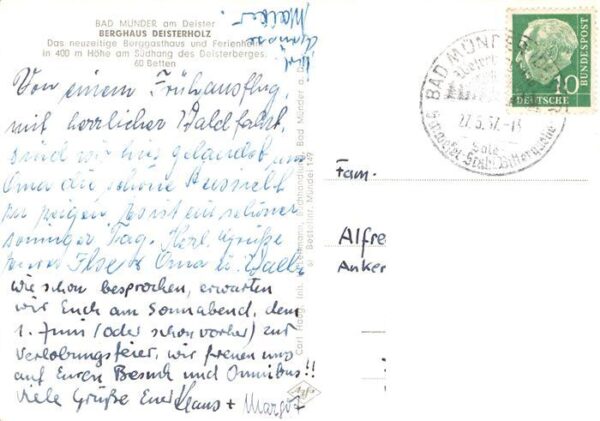 BAD MÜNDER am Deister
BERGHAUS DEISTERHOLZ
Das neuzeitige Berggasthaus und Ferienheim
in 400 m Höhe am Südhang des Deisterberges.
60 Betten
Von einem Frühausflug,
mit herrlicher Waldfahrt,
sind wir hier gelandet um
Oma die schöne
zu zeigen. Es ist ein schöner
sonniger Tag. Herzl. Grüße
Oma u.
wie schon besprochen, erwarten
wir Euch am Sonnabend, dem
1. Juni (oder schon vorher) zur
Verlobungsfeier, wir freuen uns
auf Euren Besuch und Omnibus!!
Viele Grüße Euer Klaus + Margot
Carl Haag, Inh. Buchhandlung, Bad Münder a. D.
Bestellnr. Münder 149
Agfa
BAD MÜNDER
27.5.57.-1
Sole
10
DEUTSCHE
BUNDESPOST
Fam.
Alfre
Anker